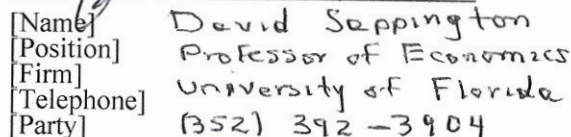 [Name] David Sappington
[Position] Professor of Economics
[Firm] University of Florida
[Telephone] (352) 392-3904
[Party]